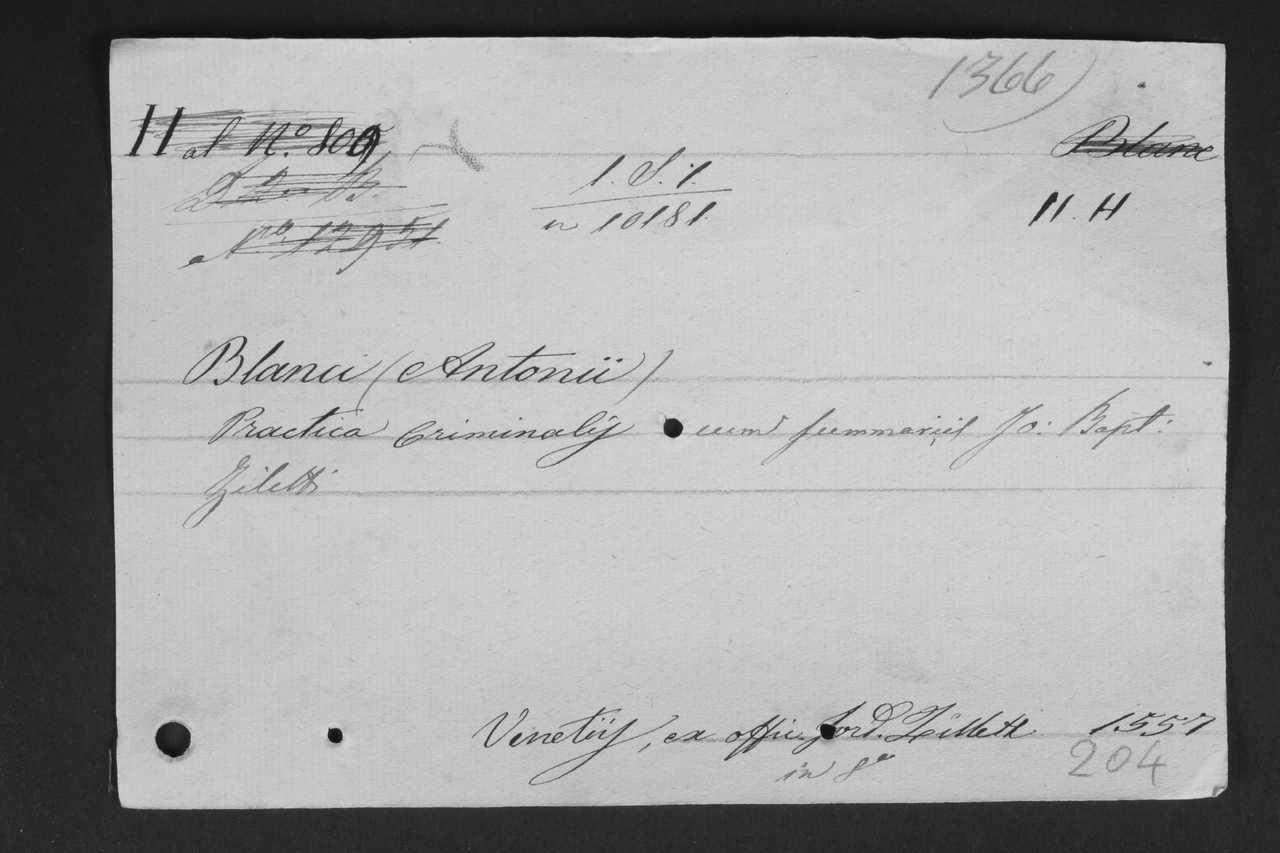 1366)
H al N.º 809
Blanc
D
Nro. 12951.
1. S. 1.
n 10181.
11. H
Blanci (Antonii)
Practica Criminalis cum summariis Jo: Bapt:
Ziletti
Venetiis, ex offic. Jord. Zilletti 1557
in 8º
204